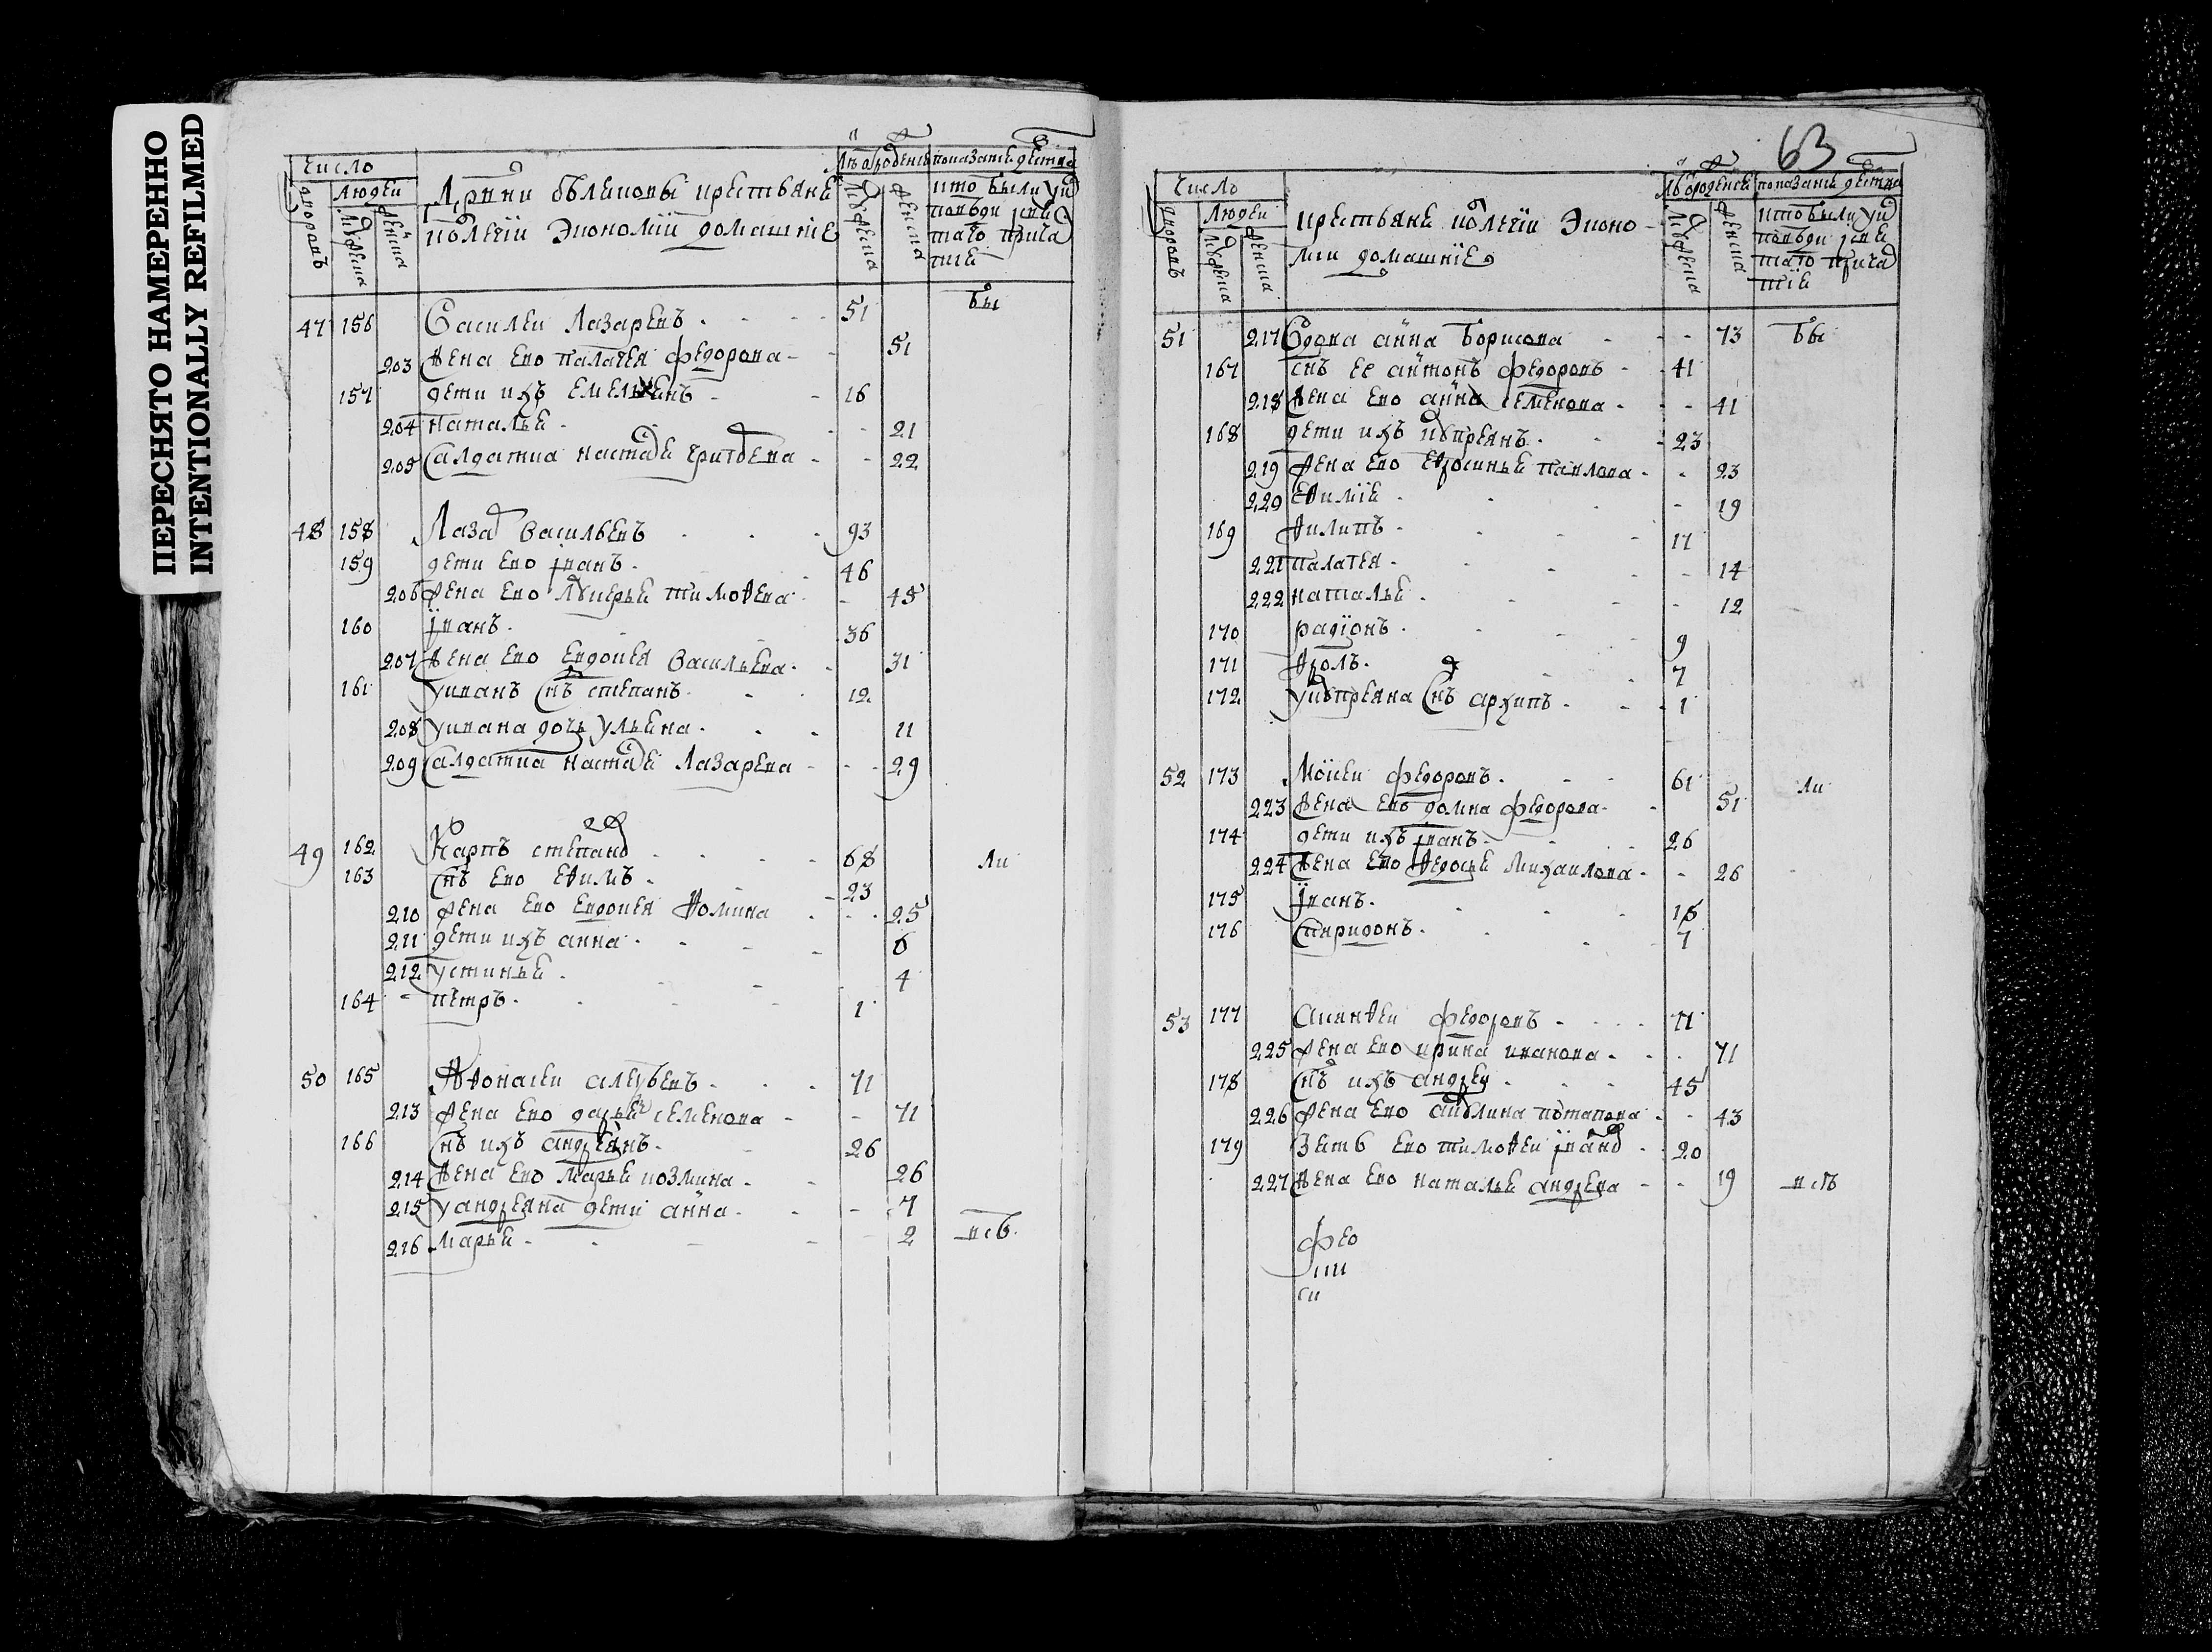 ПЕРЕСНЯТО НАМЕРЕННО
INTENTIONALLY REFILMED
число
людей
дворовъ
мужеска
женска
Дрвни булановы крестьяне
колегiи Экономiи домашнiе
мужеска
женска
показанiе действа
кто были у исповеди i святаго причастiя
47 156 Василеи Лазаревъ 51 бы
203 жена ево палагея федорова 51
157 дети ихъ емельянъ 16
204 наталья 21
205 Салдатка настасья григорева 22
48 158 Лазарь васильевъ 93
159 дети ево iванъ 46
206 жена ево лукерья тимоѳева 45
160 iванъ 36
207 жена ево Евдокея васильева 31
161 у ивана снъ степанъ 12
208 у ивана дочь ульяна 11
209 Салдатка настасья лазарева 29
49 162 Карпъ степановъ 68 ли
163 снъ ево еѳимъ 23
210 жена ево Евдокея ѳомина 25
211 дети ихъ анна 6
212 устинья 4
164 петръ 1
50 165 Аѳонасеи алексеевъ 71
213 жена ево дарья семенова 71
166 снъ ихъ андреянъ 26
214 жена ево марья козмина 26
215 у андреяна дети анна 7
216 марья 2 все
63
число
людей
дворовъ
мужеска
женска
крестьяне колегiи Экономiи домашнiе
мужеска
женска
показанiе действа
кто были у исповеди i святаго причастiя
51 217 Вдова анна борисова 73 бы
167 снъ ее антонъ федоровъ 41
218 жена ево анна семенова 41
168 дети ихъ купреянъ 23
219 жена ево еѳросинья павлова 23
220 еѳимiя 19
169 ѳилипъ 17
221 палагея 14
222 наталья 12
170 радiонъ 9
171 ѳролъ 7
172 у купреяна снъ архипъ 1
52 173 Моисеи федоровъ 61 ли
223 жена ево домна федорова 51
174 дети ихъ iванъ 26
224 жена ево ѳедосья михаилова 26
175 iванъ 16
176 Спиридонъ 7
53 177 Акинѳеи федоровъ 71
225 жена ево ирина иванова 71
178 снъ ихъ андреи 45
226 жена ево акулина потапова 43
179 Зять ево тимоѳеи iвановъ 20
227 жена ево наталья андреева 19 все
фео
си